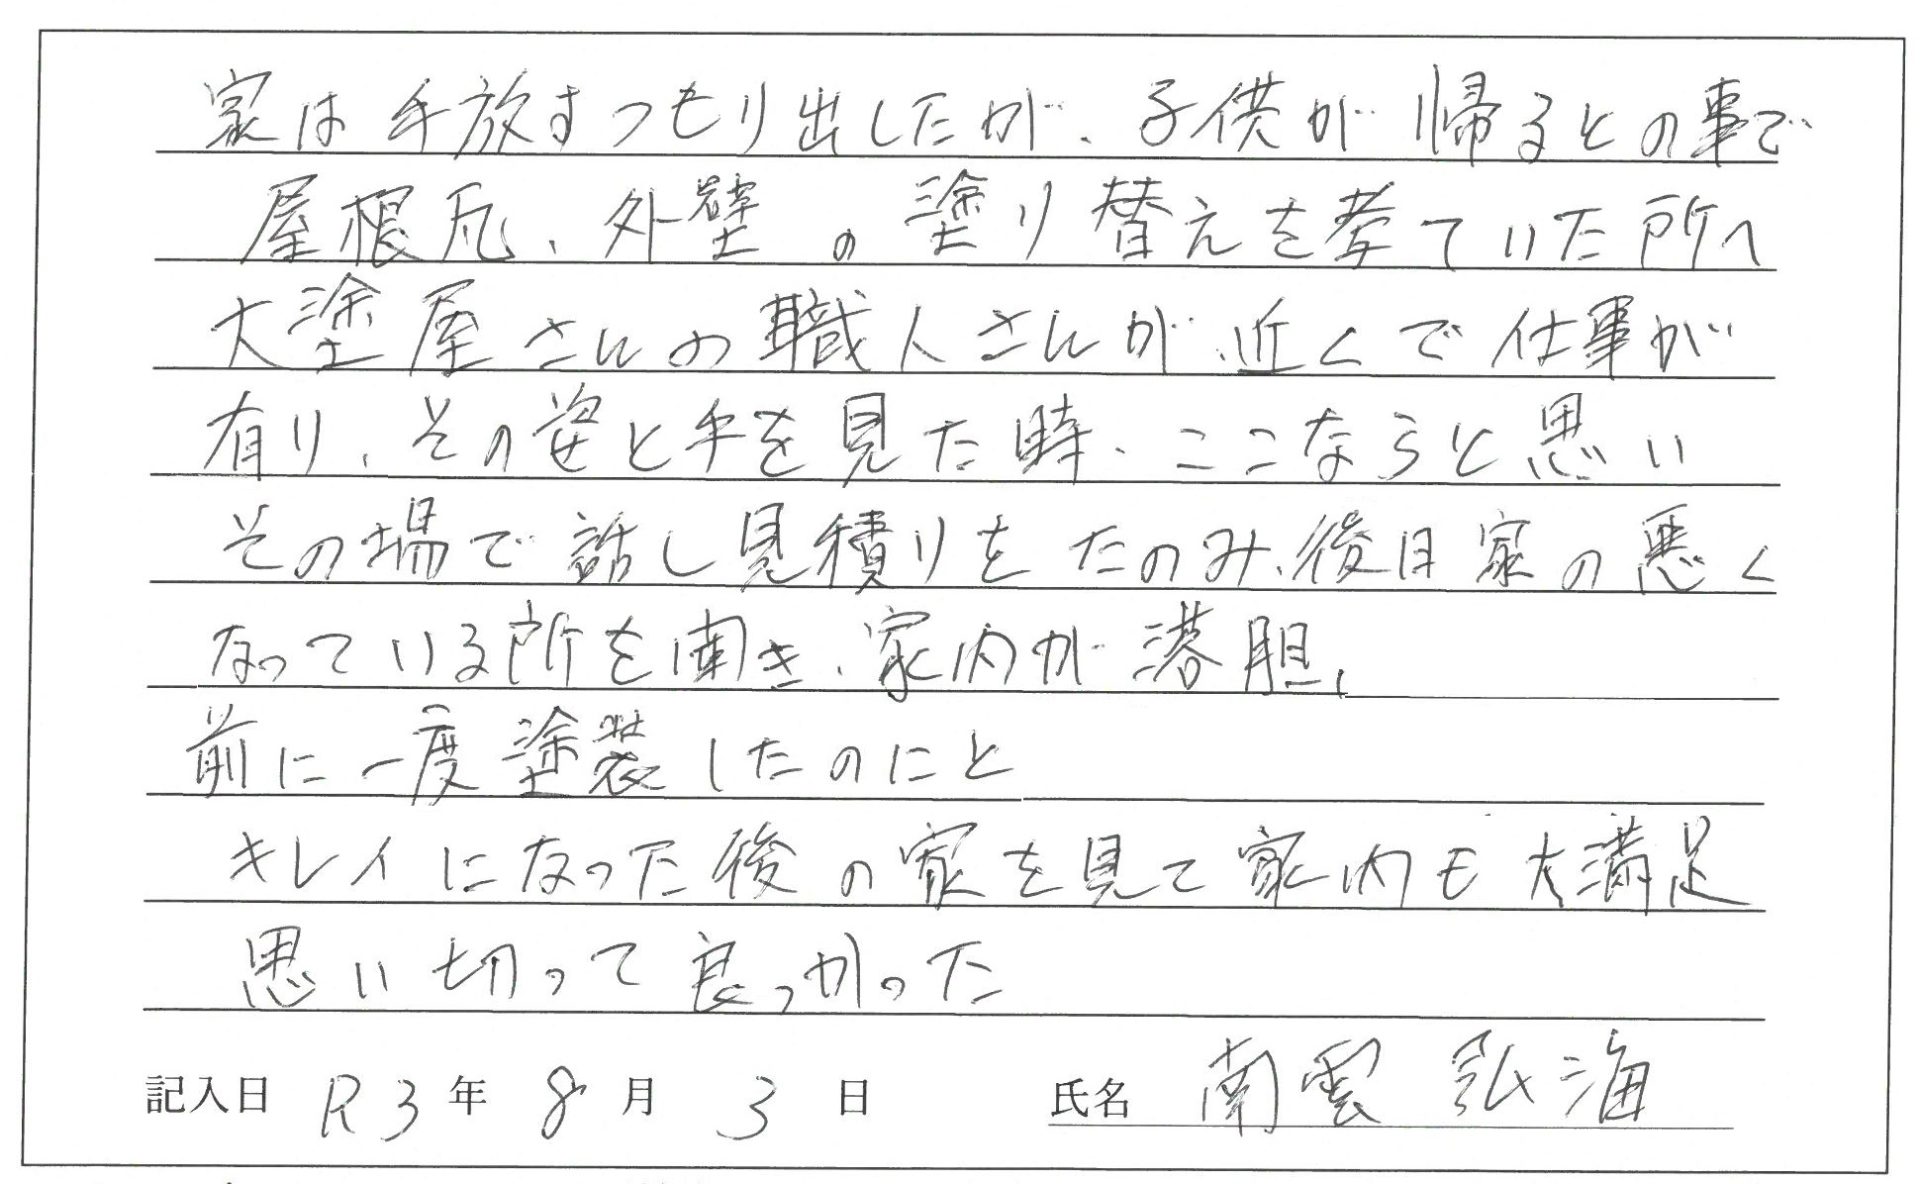 家は手放すつもり出したが、子供が帰るとの事で
屋根瓦、外壁の塗り替えを考ていた所へ
大塗屋さんの職人さんが近くで仕事が
有り、その姿と手を見た時、ここならと思い
その場で話し見積りをたのみ、後日家の悪く
なっている所を聞き、家内が落胆、
前に一度塗装したのにと
キレイになった後の家を見て家内も大満足
思い切って良っかった
記入日 R3年 8月 3日 氏名 南雲 弘海